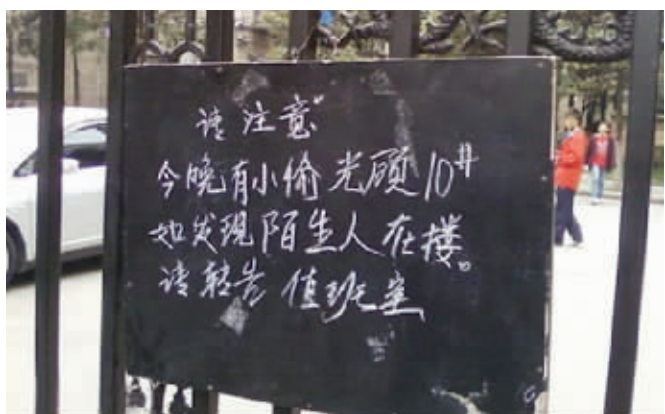 请注意
今晚有小偷光顾10#
如发现陌生人在楼。
请转告值班室